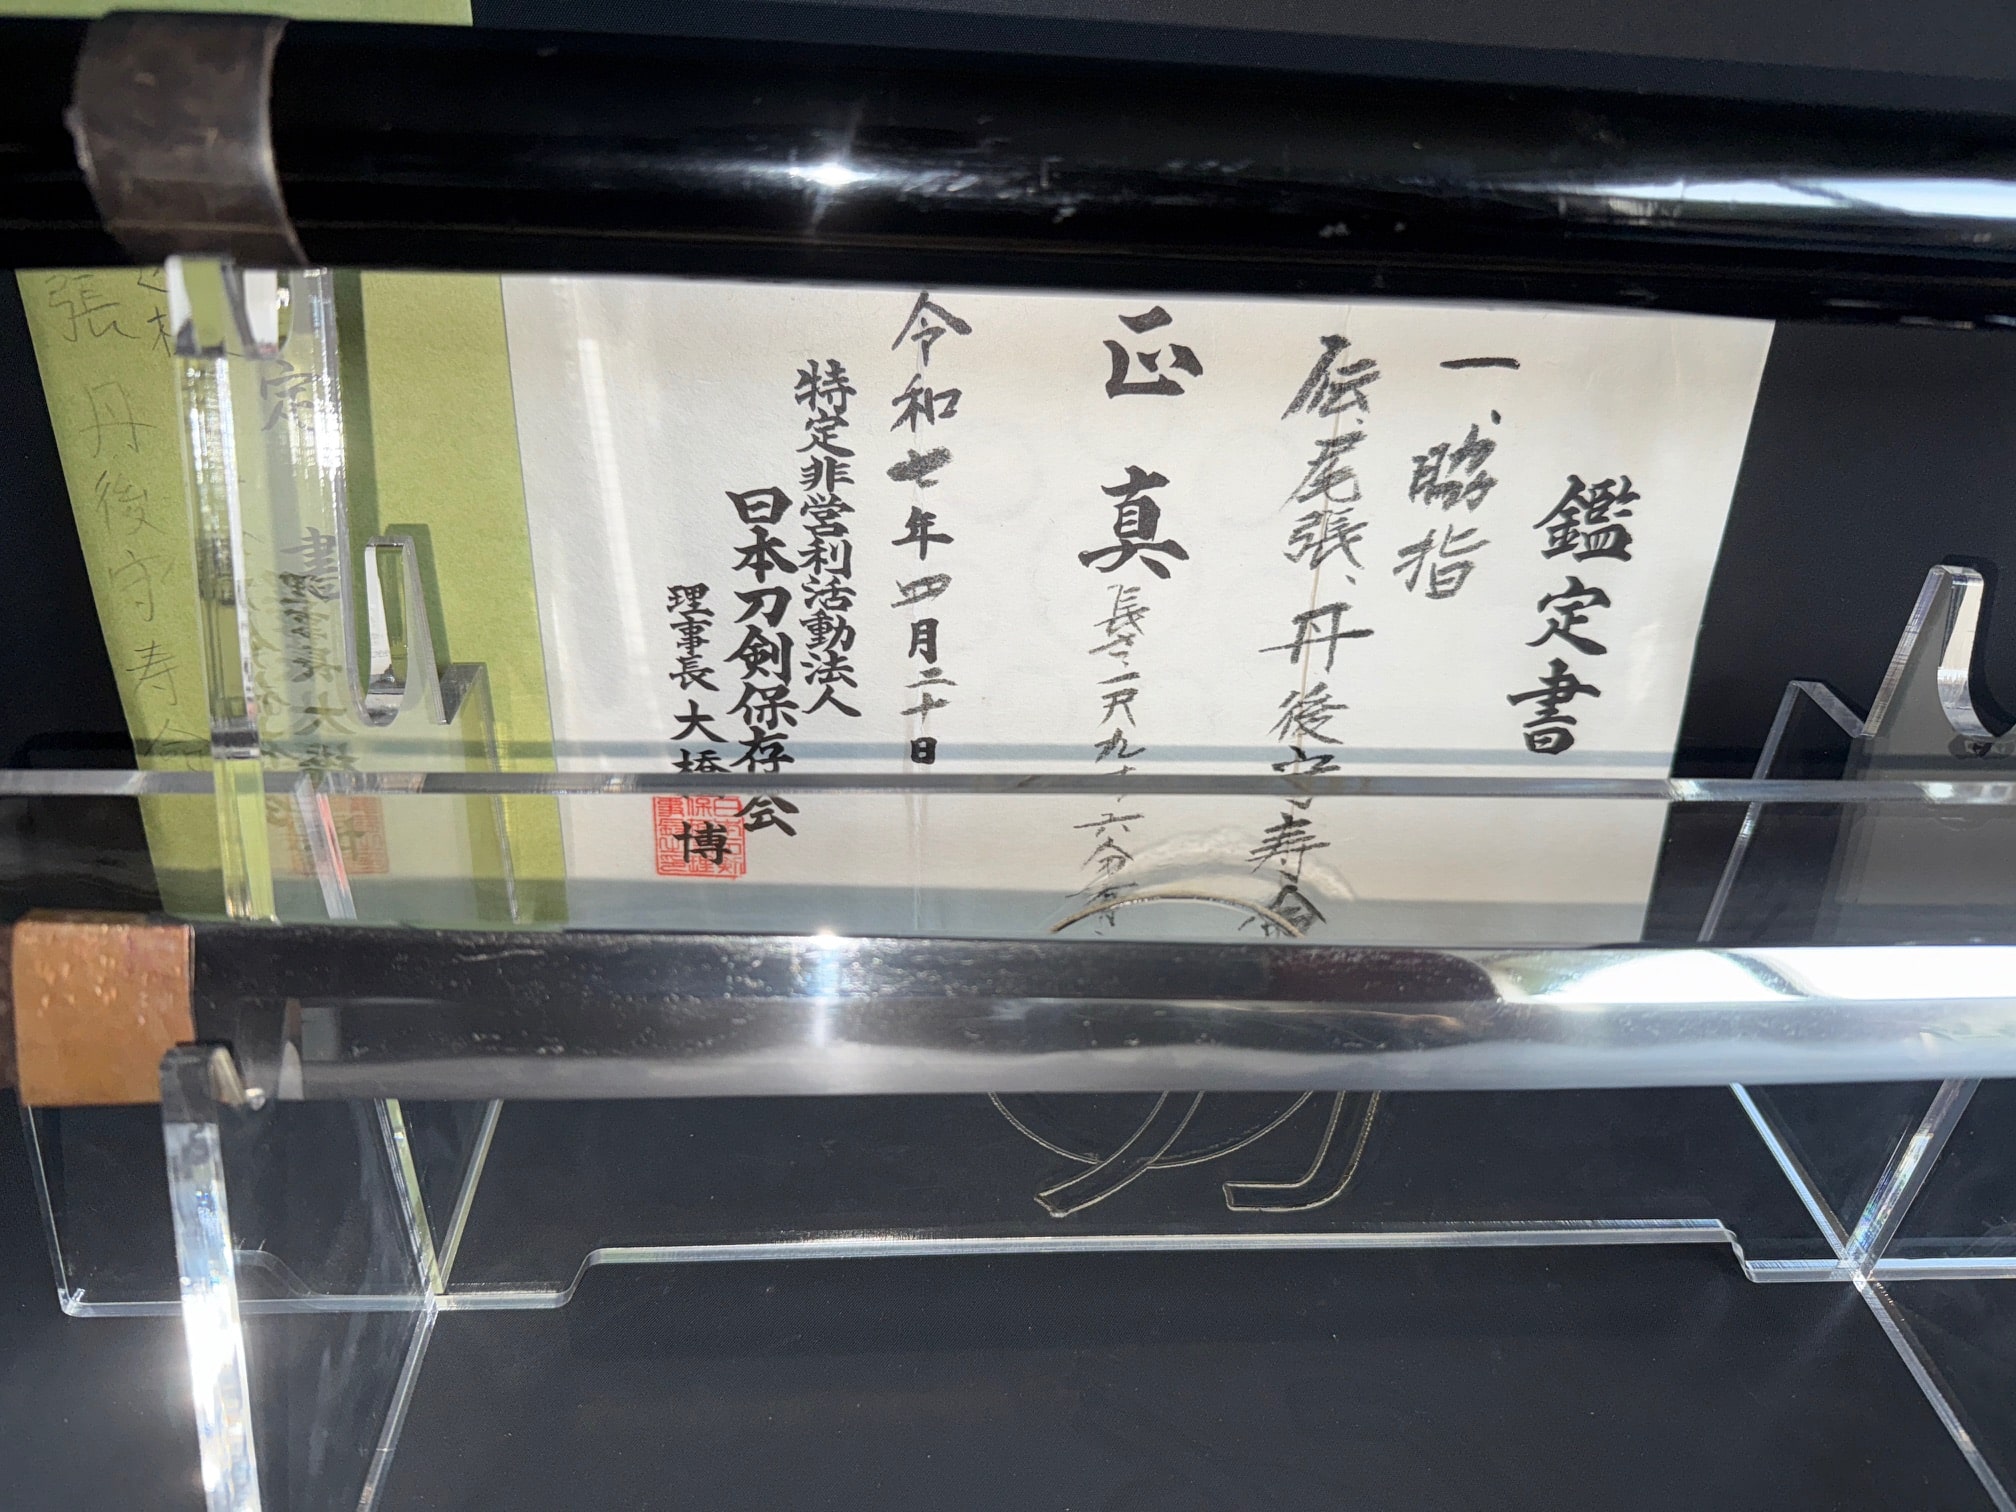 鑑定書
一、脇指
伝、尾張、丹後守寿命
正真
長さ、一尺九寸六分
令和七年四月二十日
特定非営利活動法人
日本刀剣保存会
理事長大橋博
張
丹後守寿命